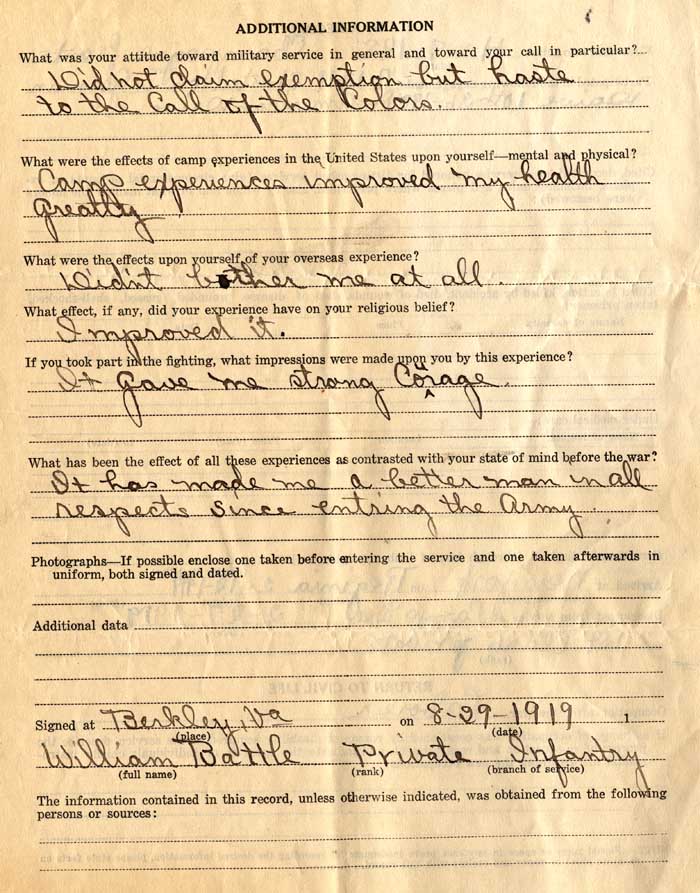 ADDITIONAL INFORMATION
What was your attitude toward military service in general and toward your call in particular?
Did not claim exemption but haste
to the Call of the Colors.
What were the effects of camp experiences in the United States upon yourself—mental and physical?
Camp experiences improved my health
greatly
What were the effects upon yourself of your overseas experience?
Didn't bother me at all.
What effect, if any, did your experience have on your religious belief?
Improved it.
If you took part in the fighting, what impressions were made upon you by this experience?
It gave me strong Courage.
What has been the effect of all these experiences as contrasted with your state of mind before the war?
It has made me a better man in all
respects since entring the Army.
Photographs—If possible enclose one taken before entering the service and one taken afterwards in
uniform, both signed and dated.
Additional data
Signed at Berkley, Va on 8-29-1919 1
(place) (date)
William Battle Private Infantry
(full name) (rank) (branch of service)
The information contained in this record, unless otherwise indicated, was obtained from the following
persons or sources: